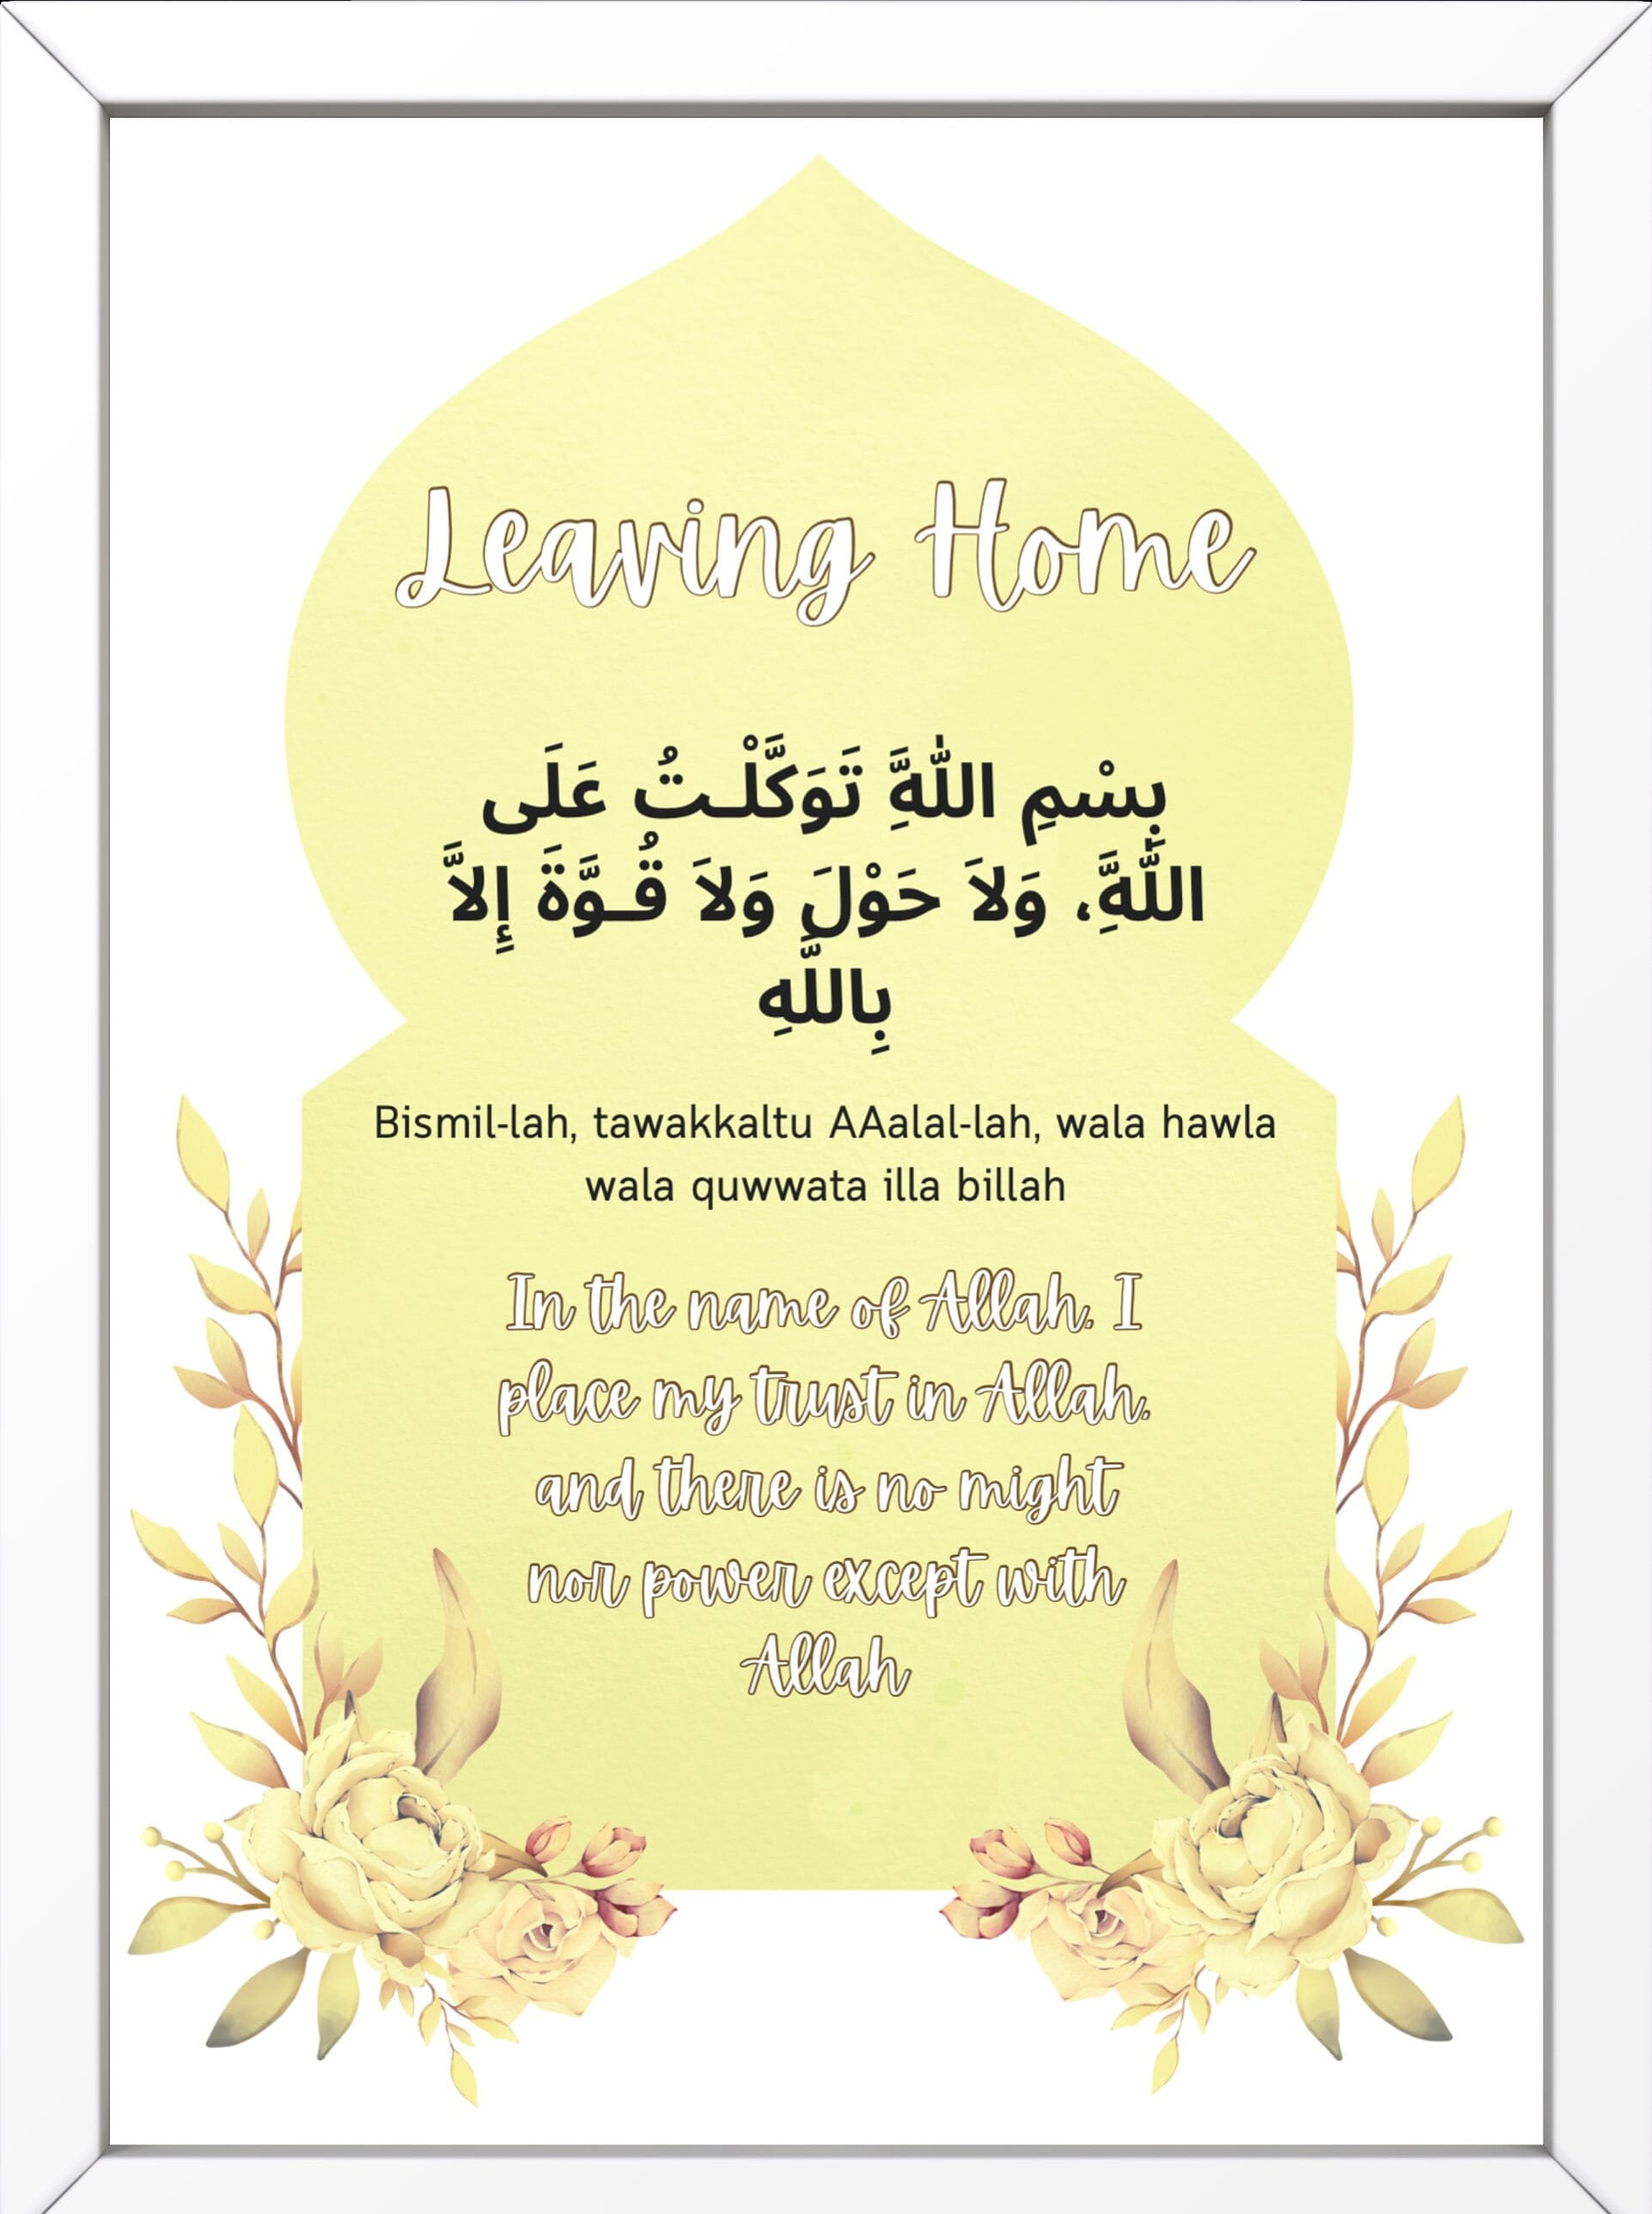 Leaving Home
بِسْمِ اللَّهِ تَوَكَّلْـتُ عَلَى
اللَّهِ، وَلاَ حَوْلَ وَلاَ قُـوَّةَ إِلاَّ
بِاللَّهِ
Bismil-lah, tawakkaltu AAalal-lah, wala hawla
wala quwwata illa billah
In the name of Allah. I
place my trust in Allah.
and there is no might
nor power except with
Allah